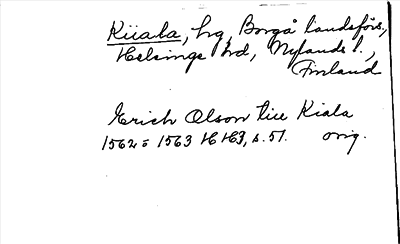 Kiiala, hg, Borgå landsförs,
Helsinge hd, Nylands l.,
Finland
Erich Olson tiil Kiala
1562 = 1563 HH3, s. 51. orig.